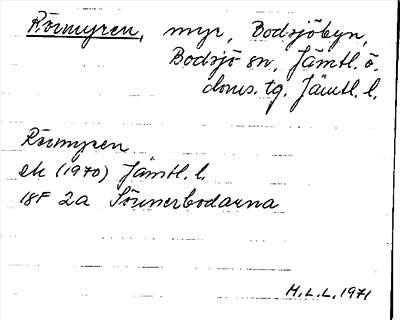 Rörmyren, myr, Bodsjöbyn,
Bodsjö sn, Jämtl. ö.
doms. tg. Jämtl. l.
Rörmyren
ek (1970) Jämtl. l.
18F 2a Sönnerbodarna
H.L.L. 1971